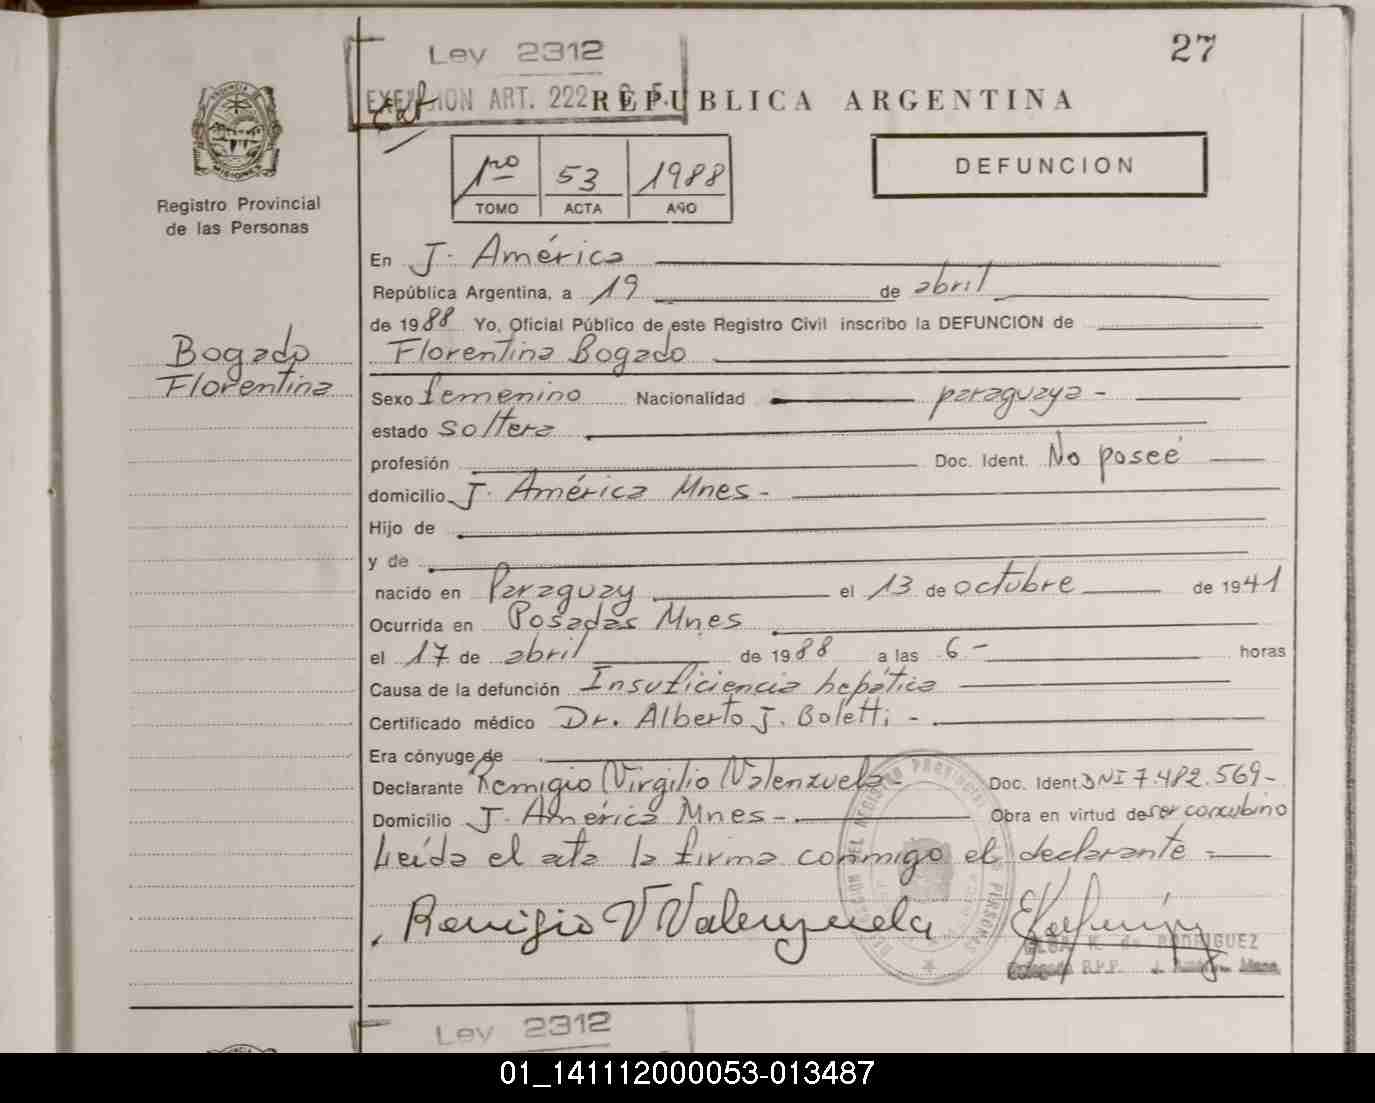 27
Ley 2312
EXENCION ART. 222
REPUBLICA ARGENTINA
PROVINCIA DE MISIONES
Registro Provincial
de las Personas
1ro 53 1988
TOMO ACTA AÑO
DEFUNCION
En J. América
República Argentina, a 19 de abril
de 1988 Yo, Oficial Público de este Registro Civil inscribo la DEFUNCION de
Bogado
Florentina
Florentina Bogado
Sexo femenino Nacionalidad paraguaya -
estado soltera
profesión Doc. Ident. No poseé
domicilio J. América Mnes -
Hijo de
y de
nacido en Paraguay el 13 de octubre de 1941
Ocurrida en Posadas Mnes
el 17 de abril de 1988 a las 6 - horas
Causa de la defunción Insuficiencia hepática
Certificado médico Dr. Alberto J. Boletti -
Era cónyuge de
Declarante Remigio Virgilio Valenzuela - Doc. Ident DNI 7.482.569 -
Domicilio J. América Mnes - Obra en virtud de ser concubino
Leída el acta la firma conmigo el declarante -
Remigio V Valenzuela
DE RODRIGUEZ
R.P.P.
Ley 2312
01_141112000053-013487